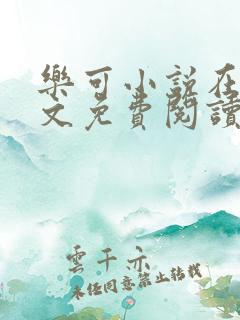 樂可小說在
文免費閱讀
雲千亦
未經同意禁止轉載